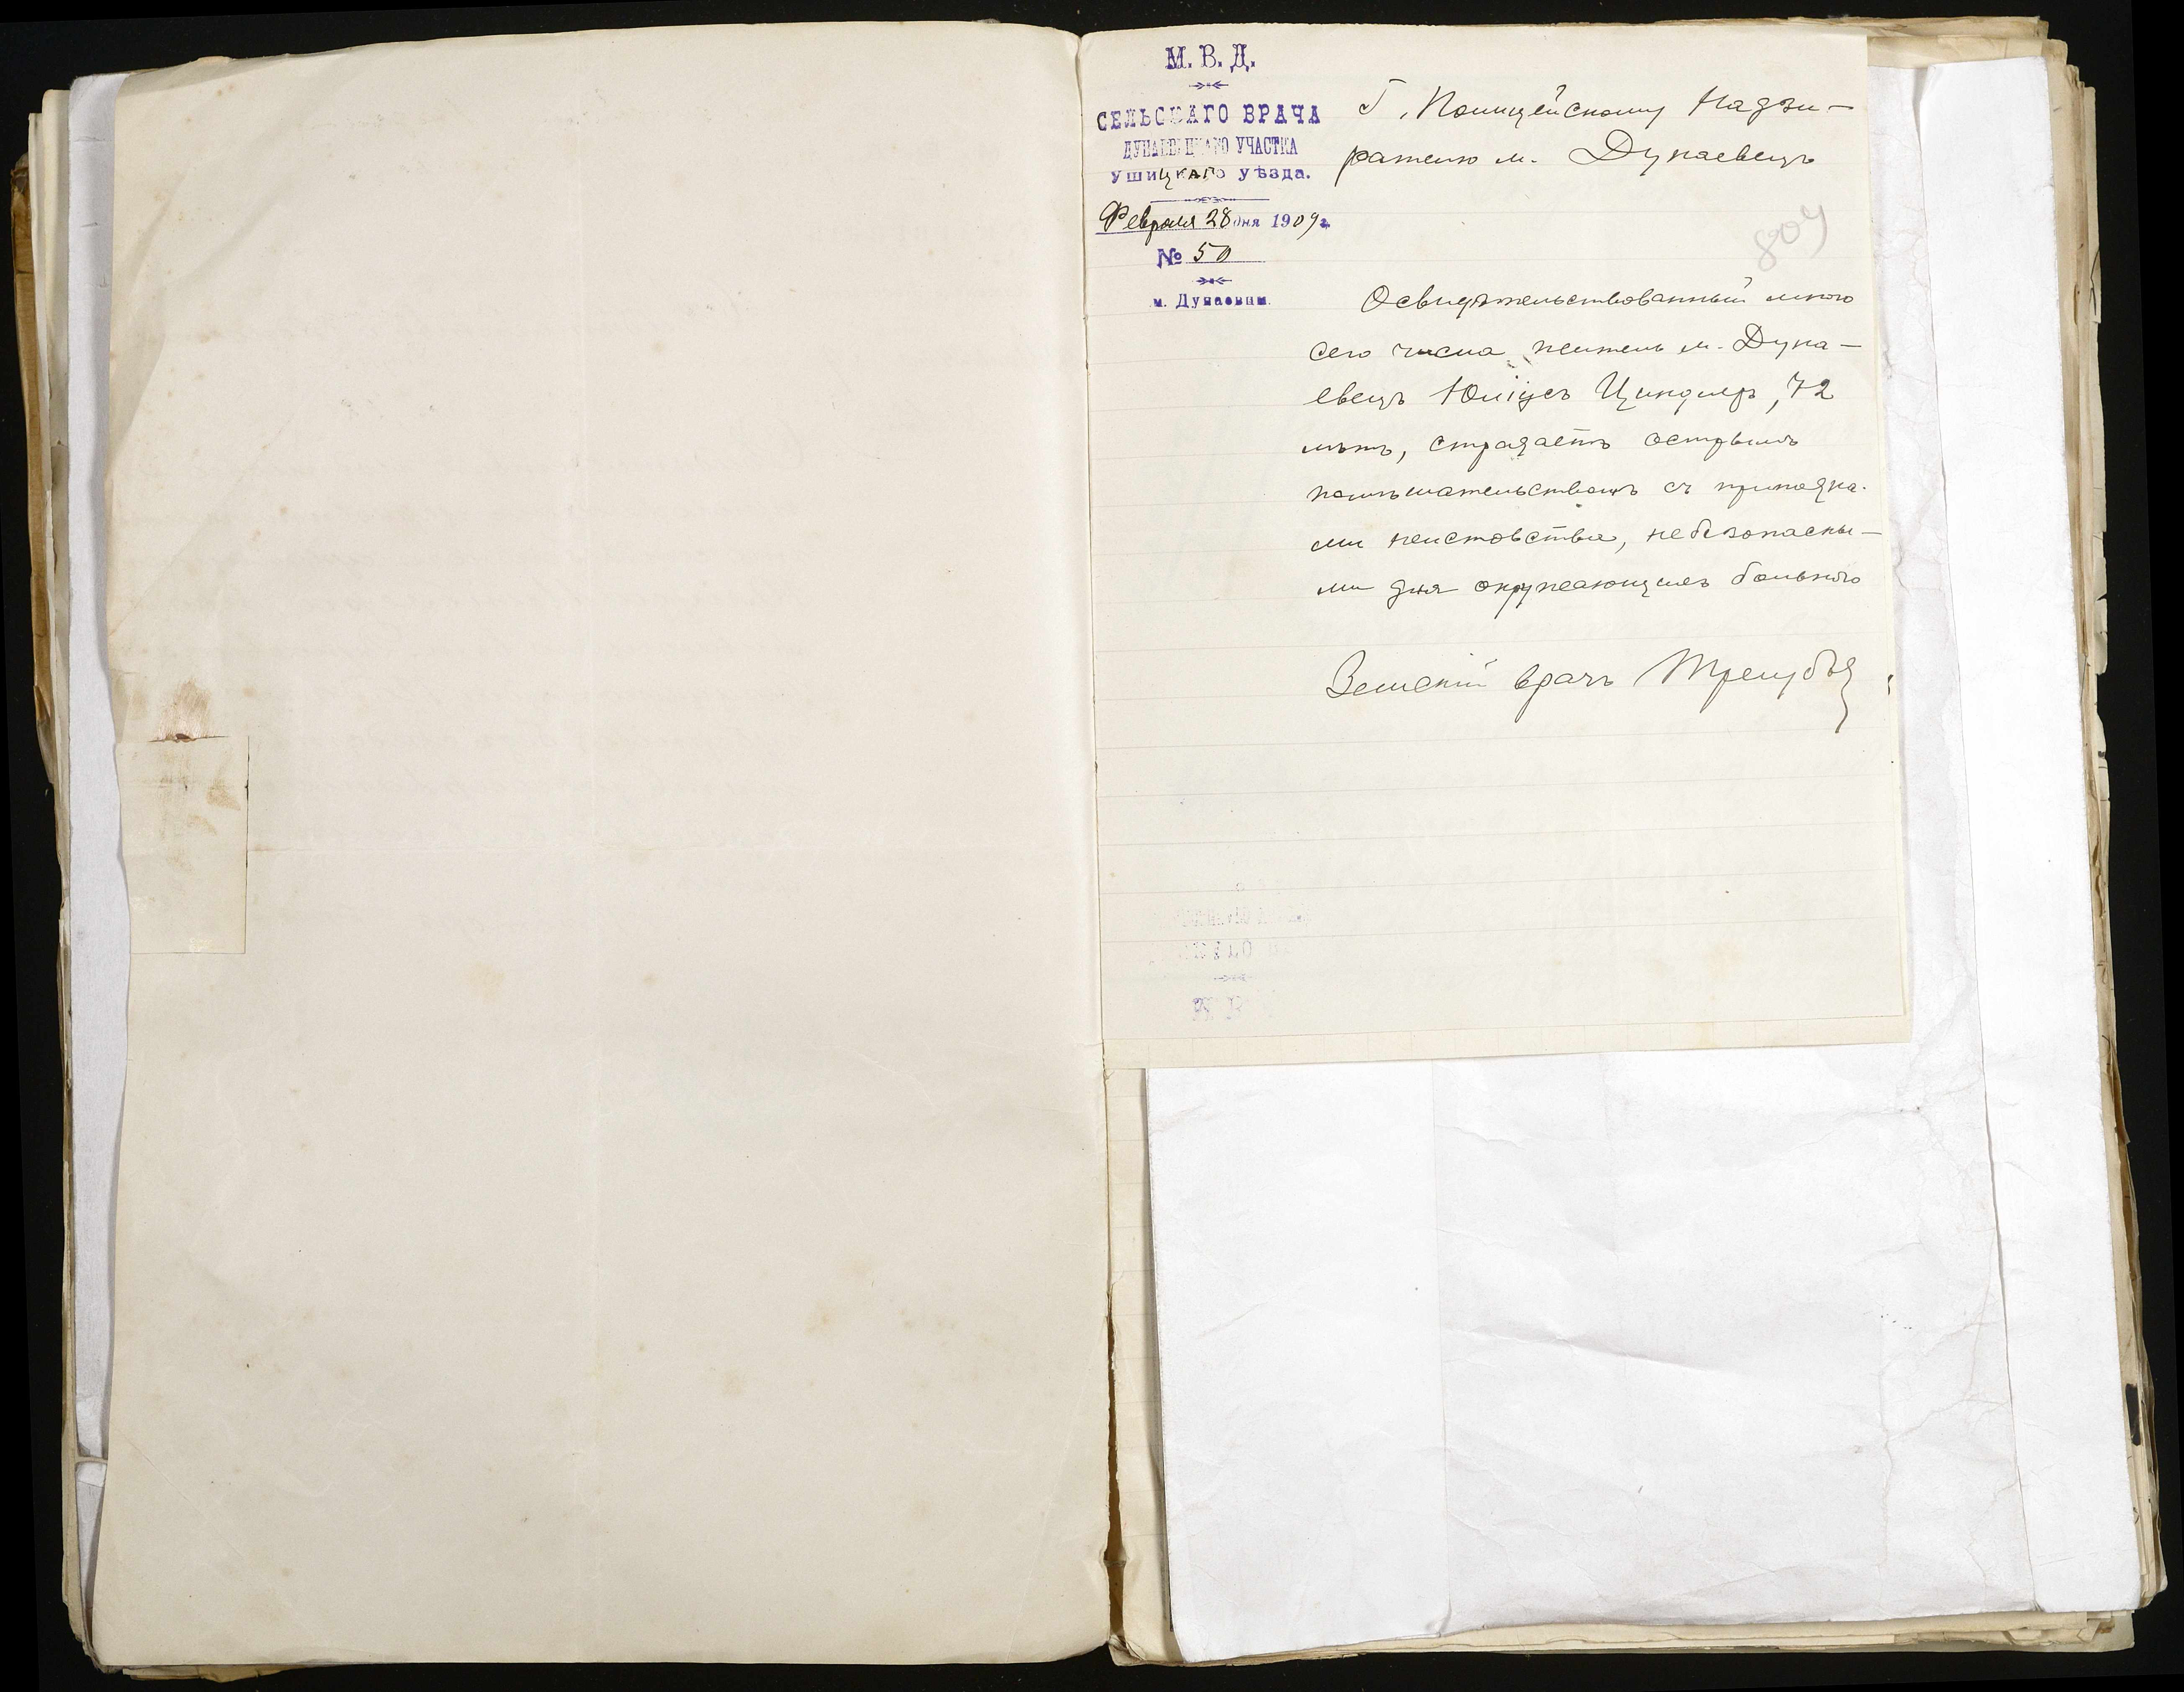 М. В. Д.
СЕЛЬСКАГО ВРАЧА
ДУНАЕВЕЦКАГО УЧАСТКА
Ушицкаго уѣзда.
Февраля 28 дня 1909 г.
№ 50
м. Дунаевцы.
Г. Полицейскому Надзи-
рателю м. Дунаевецъ
809
Освидѣтельствованный мною
сего числа житель м. Дуна-
евецъ Юліусъ Циндлеръ, 72
лѣтъ, страдаетъ острымъ
помѣшательствомъ съ припадка-
ми неистовства, небезопасны-
ми для окружающихъ больного
Земскій врачъ